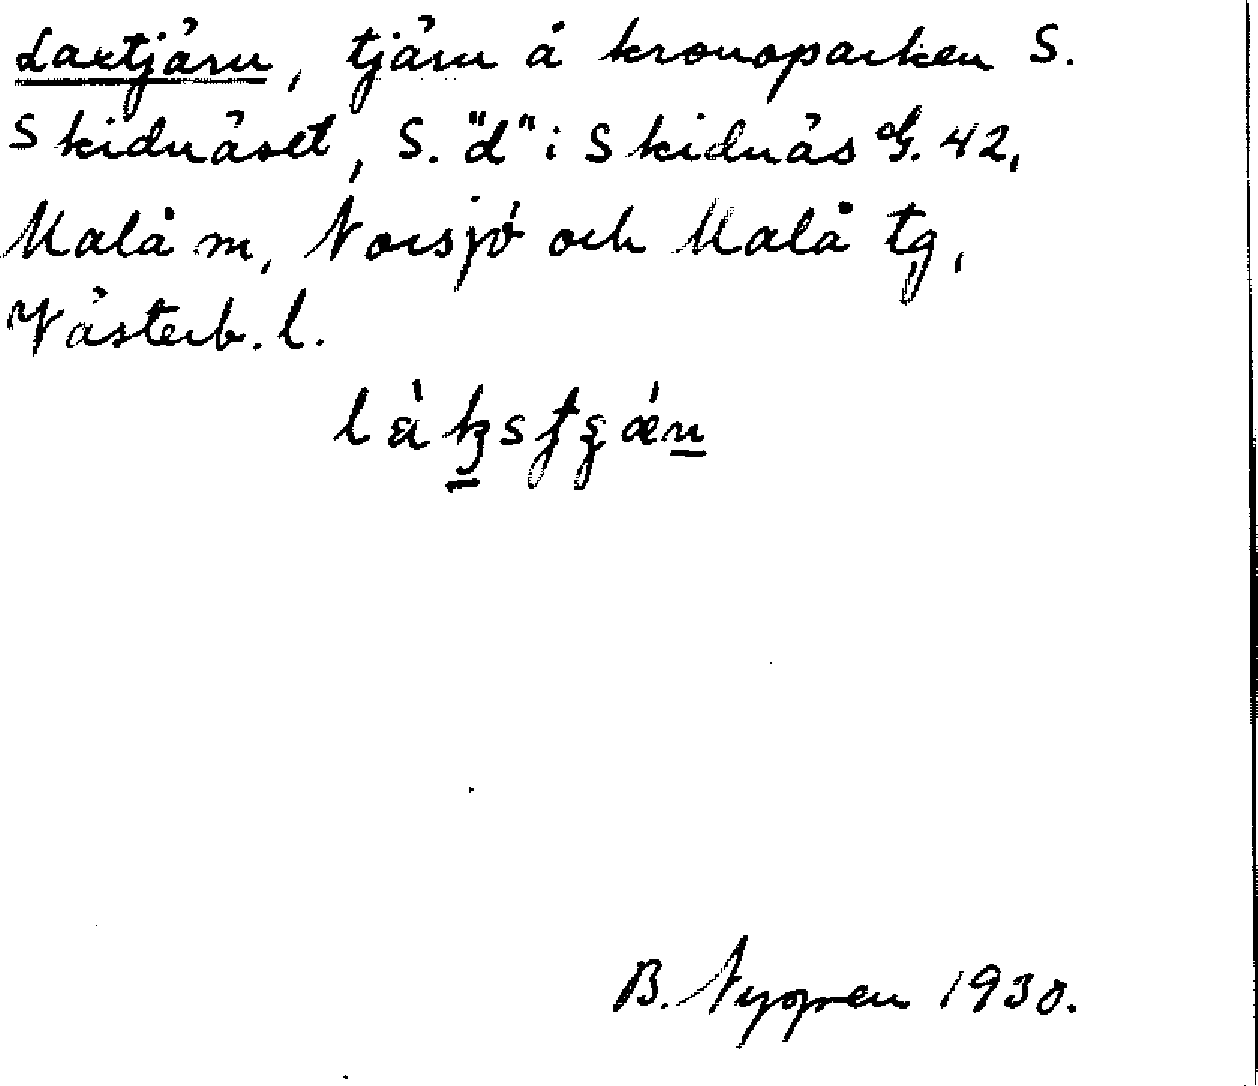 Laxtjärn, tjärn å kronoparken S.
Skidnäset, S. "d" i Skidnäs G. 42,
Malå sn, Norsjö och Malå tg,
Västerb. l.
B. Nygren 1930.